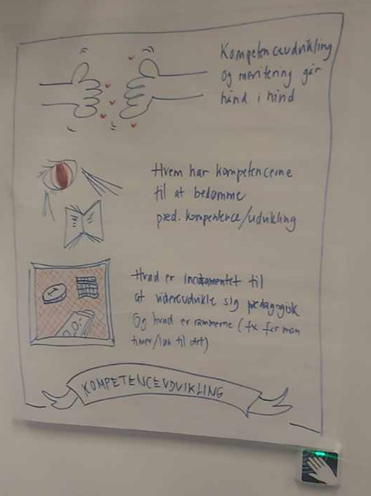 Kompetenceudvikling
og meritering går
hånd i hånd
Hvem har kompetencerne
til at bedømme
pæd. kompetence/udvikling
Hvad er incitamentet til
at videreudvikle sig pædagogisk
og hvad er rammerne (fx får man
timer/løn til det)
KOMPETENCEUDVIKLING